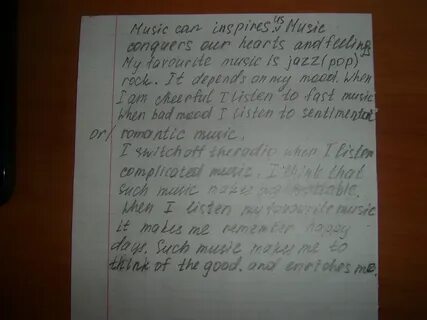 Music can inspires us. Music
conquers our hearts and feelings
My favourite music is jazz (pop)
rock. It depends on my mood. When
I am cheerful I listen to fast music
When bad mood I listen to sentimental
or/ romantic music.
I switch off the radio when I listen
complicated music. I think that
such music makes
When I listen my favourite music
it makes me remember happy
days. Such music makes me to
think of the good. and enriches me.